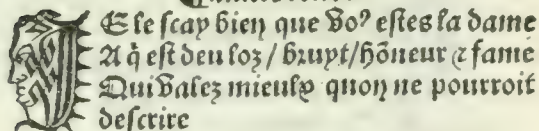 IE le ſcay bien que voꝰ eſtes la dame
A q̃ eſt deu loz / bruyt / hõneur ⁊ fame
Qui valez mieulx quon ne pourroit
deſcrire